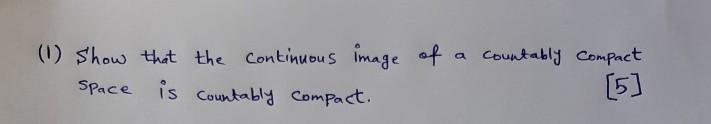 (1) Show that the continuous image of a countably compact
space is countably compact. [5]